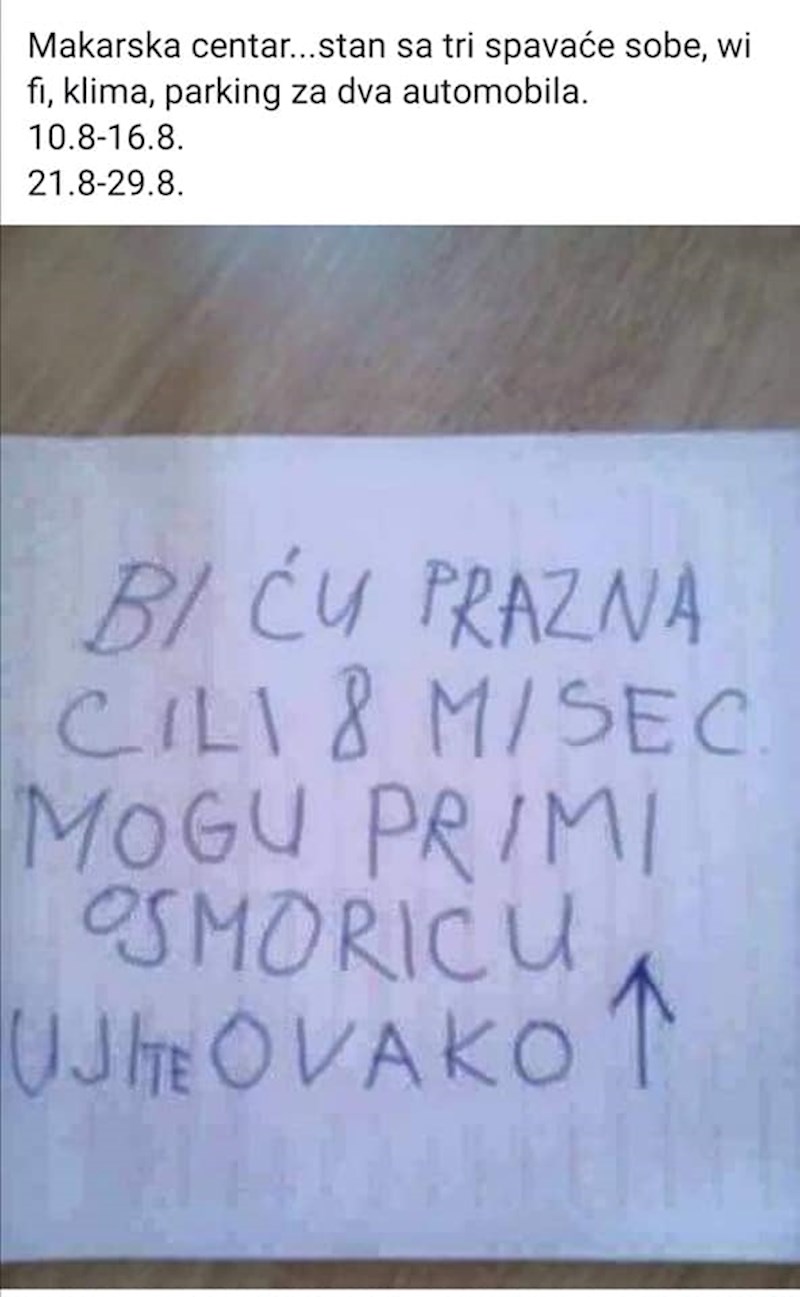 Makarska centar...stan sa tri spavaće sobe, wi
fi, klima, parking za dva automobila.
10.8-16.8.
21.8-29.8.
BI ĆU PRAZNA
CILI 8 MISEC.
MOGU PRIMI
OSMORICU
UJITE OVAKO ↑